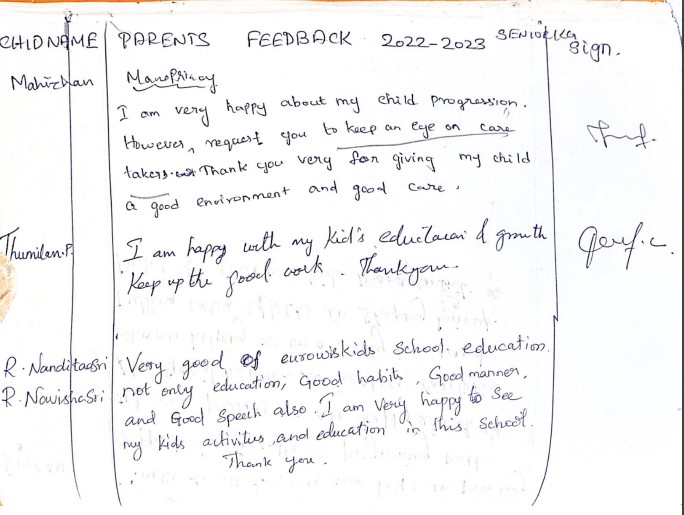 CHIDNAME PARENTS FEEDBACK 2022-2023 SENIOR KG Sign.
Mahizhan Manopriay
I am very happy about my child progression.
However, request you to keep an eye on care
takers. Thank you very for giving my child
a good environment and good care.
Thumilan.P. I am happy with my kid's eductacai & growth
Keep up the good work. Thank you.
R. Nanditaasri Very good of eurowiskids School education.
R. NavishaSri not only education, Good habits, Good manner,
and Good Speech also. I am Very happy to See
my kids activitus and education in this School.
Thank you.